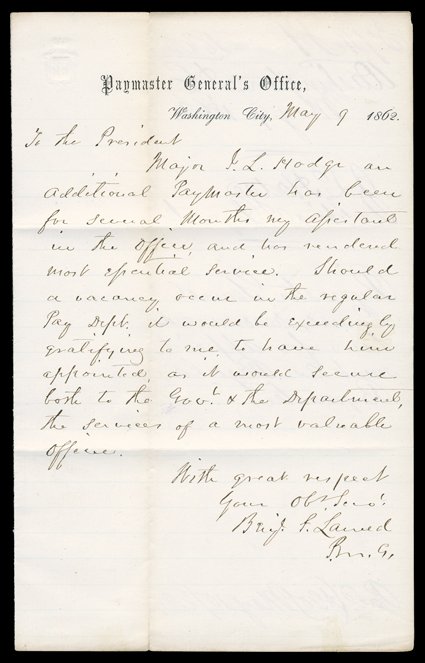 Paymaster General's Office,
Washington City, May 9 1862.
To the President
Major J. L. Hodge an
Additional Paymaster has been
for several Months my Assistant
in the Office, and has rendered
most essential service. Should
a vacancy occur in the regular
Pay Dept. it would be exceedingly
gratifying to me to have him
appointed, as it would secure
both to the Govt. & the Department,
the services of a most valuable
Officer.
With great respect
Your Obt. Servt.
Benj. F. Larned
P.M.G.